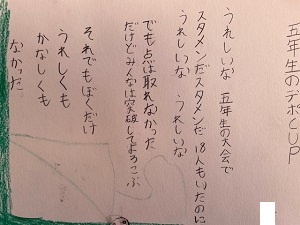 五年生のデポCUP
うれしいな 五年生の大会で
スタメンだスタメンだ 18人もいたのに
うれしいな うれしいな
でも点は取れなかった
だけどみんなは突破してよろこぶ
それでもぼくだけ
うれしくも
かなしくも
なかった。